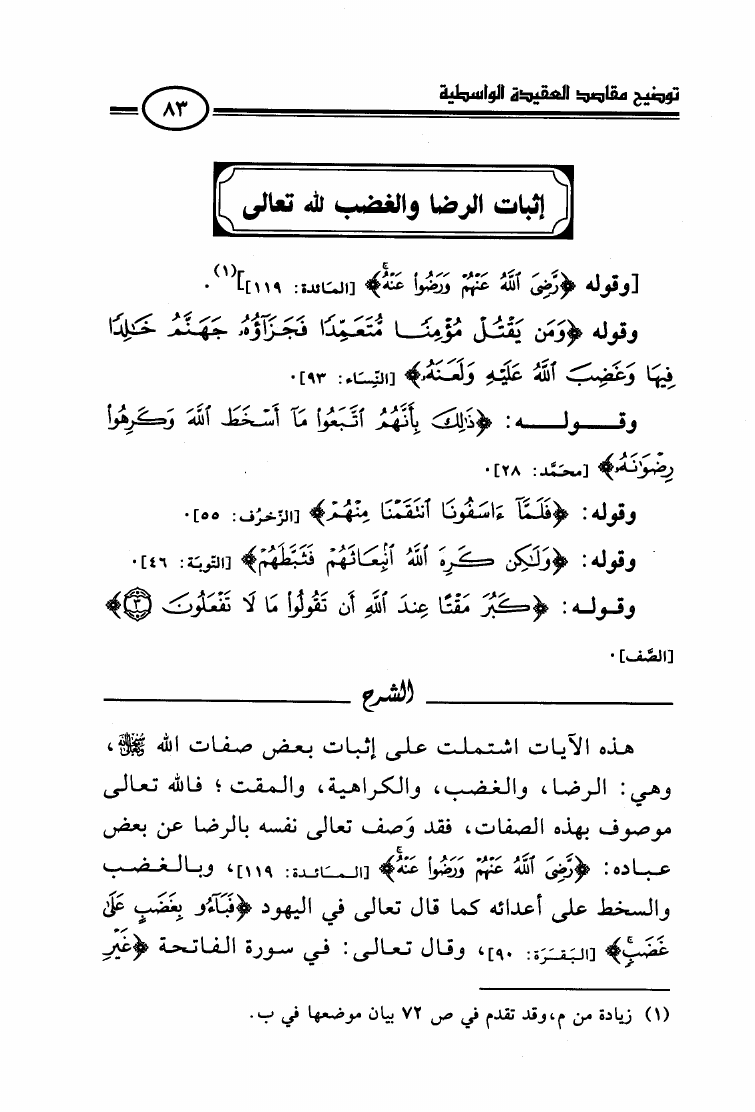 توضيح مقاصد العقيدة الواسطية
٨٣
إثبات الرضا والغضب لله تعالى
[وقوله ﴿رَّضِىَ ٱللَّهُ عَنْهُمْ وَرَضُوا۟ عَنْهُۚ﴾ [المَائدة: ١١٩]](١).
وقوله ﴿وَمَن يَقْتُلْ مُؤْمِنًا مُّتَعَمِّدًا فَجَزَآؤُهُۥ جَهَنَّمُ خَٰلِدًا
فِيهَا وَغَضِبَ ٱللَّهُ عَلَيْهِ وَلَعَنَهُۥ﴾ [النِّسَاء: ٩٣].
وقوله: ﴿ذَٰلِكَ بِأَنَّهُمُ ٱتَّبَعُوا۟ مَآ أَسْخَطَ ٱللَّهَ وَكَرِهُوا۟
رِضْوَٰنَهُۥ﴾ [محَمَّد: ٢٨].
وقوله: ﴿فَلَمَّآ ءَاسَفُونَا ٱنتَقَمْنَا مِنْهُمْ﴾ [الزّخرُف: ٥٥].
وقوله: ﴿وَلَٰكِن كَرِهَ ٱللَّهُ ٱنۢبِعَاثَهُمْ فَثَبَّطَهُمْ﴾ [التّوبَة: ٤٦].
وقوله: ﴿كَبُرَ مَقْتًا عِندَ ٱللَّهِ أَن تَقُولُوا۟ مَا لَا تَفْعَلُونَ ٣﴾
[الصَّف].
الشرح
هذه الآيات اشتملت على إثبات بعض صفات الله ﷻ،
وهي: الرضا، والغضب، والكراهية، والمقت؛ فالله تعالى
موصوف بهذه الصفات، فقد وَصف تعالى نفسه بالرضا عن بعض
عباده: ﴿رَّضِىَ ٱللَّهُ عَنْهُمْ وَرَضُوا۟ عَنْهُۚ﴾ [المَائدة: ١١٩]، وبالغضب
والسخط على أعدائه كما قال تعالى في اليهود ﴿فَبَآءُو بِغَضَبٍ عَلَىٰ
غَضَبٍۚ﴾ [البَقَرَة: ٩٠]، وقال تعالى: في سورة الفاتحة ﴿غَيْرِ
(١) زيادة من م، وقد تقدم في ص ٧٢ بيان موضعها في ب.